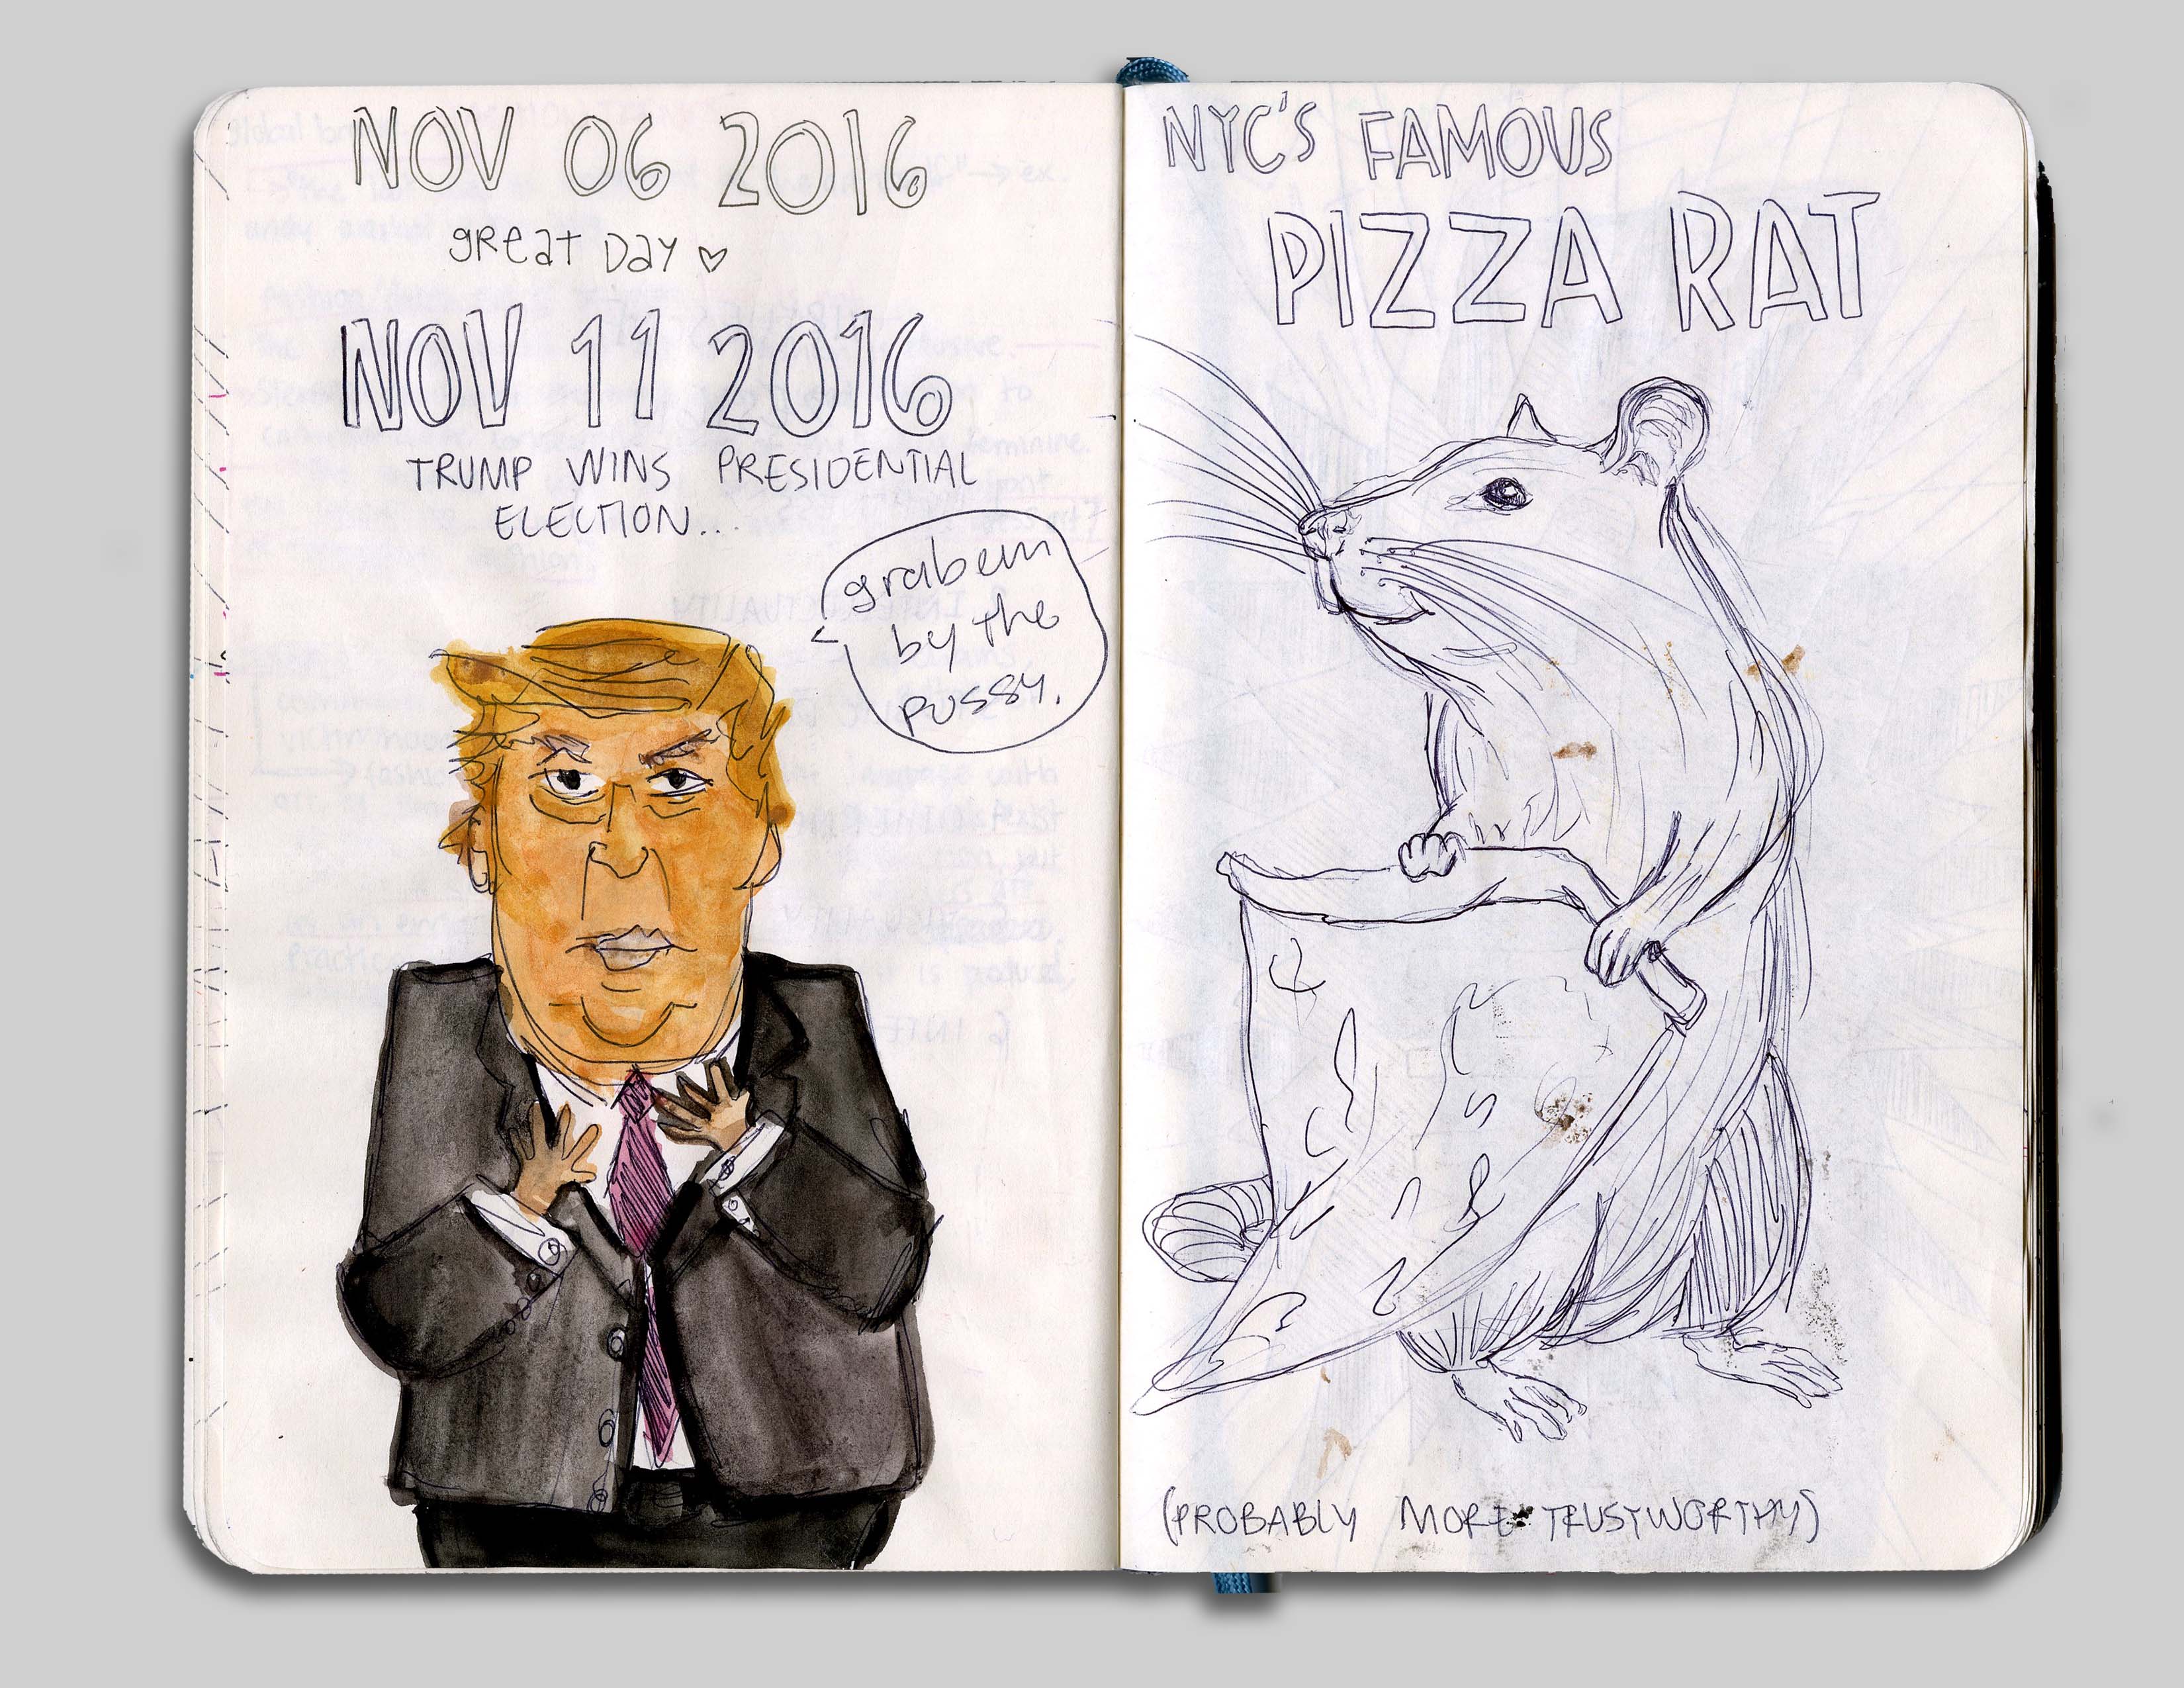 NOV 06 2016
great Day
NOV 11 2016
TRUMP WINS PRESIDENTIAL
ELECTION...
grabem
by the
pussy.
NYC'S FAMOUS
PIZZA RAT
(PROBABLY MORE TRUSTWORTHY)